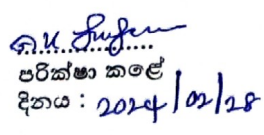 .....................
පරික්ෂා කළේ
දිනය : 2024/02/28